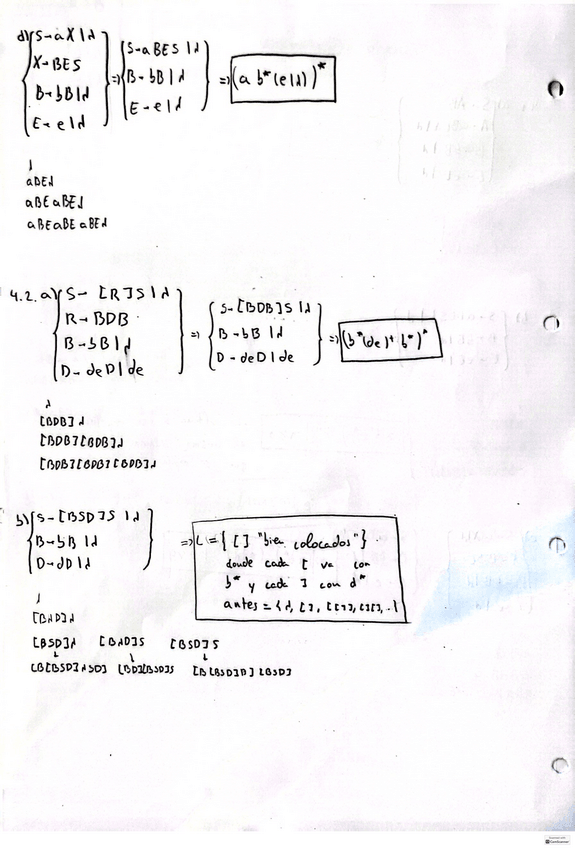 d) S→aX|λ
X→BES
B→bB|λ
E→e|λ
⇒ S→aBES|λ
B→bB|λ
E→e|λ
⇒ (a b* (e|λ))*
λ
aBEλ
aBEaBEλ
aBEaBEaBEλ
4.2. a) S→[R]S|λ
R→BDB
B→bB|λ
D→deD|de
⇒ S→[BDB]S|λ
B→bB|λ
D→deD|de
⇒ (b*(de)+ b*)*
λ
[BDB]λ
[BDB][BDB]λ
[BDB][BDB][BDB]λ
b) S→[BSD]S|λ
B→bB|λ
D→dD|λ
⇒ L={[] "bien colocados"}
donde cada [ va con
b* y cada ] con d*
antes = {λ, [], [[]], [][], .}
λ
[BλD]λ
[BSD]λ [BλD]S [BSD]S
[B[BSD]λSD] [BD][BSD]S
CamScanner